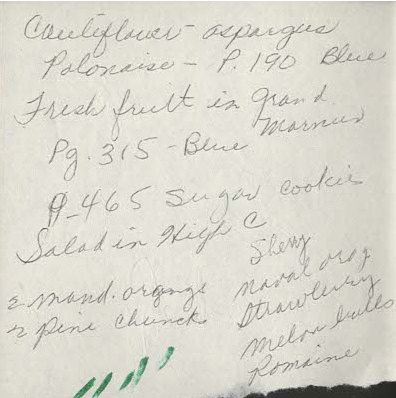 Cauliflower - asparagus
Polonaise - P. 190 Blue
Fresh fruit in Grand
Marnier
Pg. 315 - Blue
P-465 Sugar cookies
Salad in High C
Sherry
2 mand. orange
2 pine chuncks
naval orag
Strawberry
Melon balls
Romaine